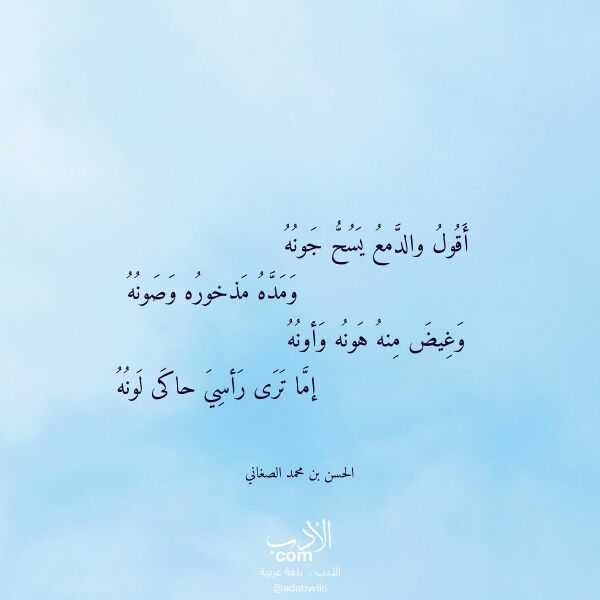 أَقُولُ والدَّمعُ يَسُحُّ جَونُهُ
وَمَدَّهُ مَذخورُه وَصَونُهُ
وَغِيضَ مِنهُ هَونُه وَأونُهُ
إمَّا تَرَى رَأسِيَ حاكَى لَونُهُ
الحسن بن محمد الصغاني
الأدب
com
الأدب .. بلغة عربية
@adabwiki